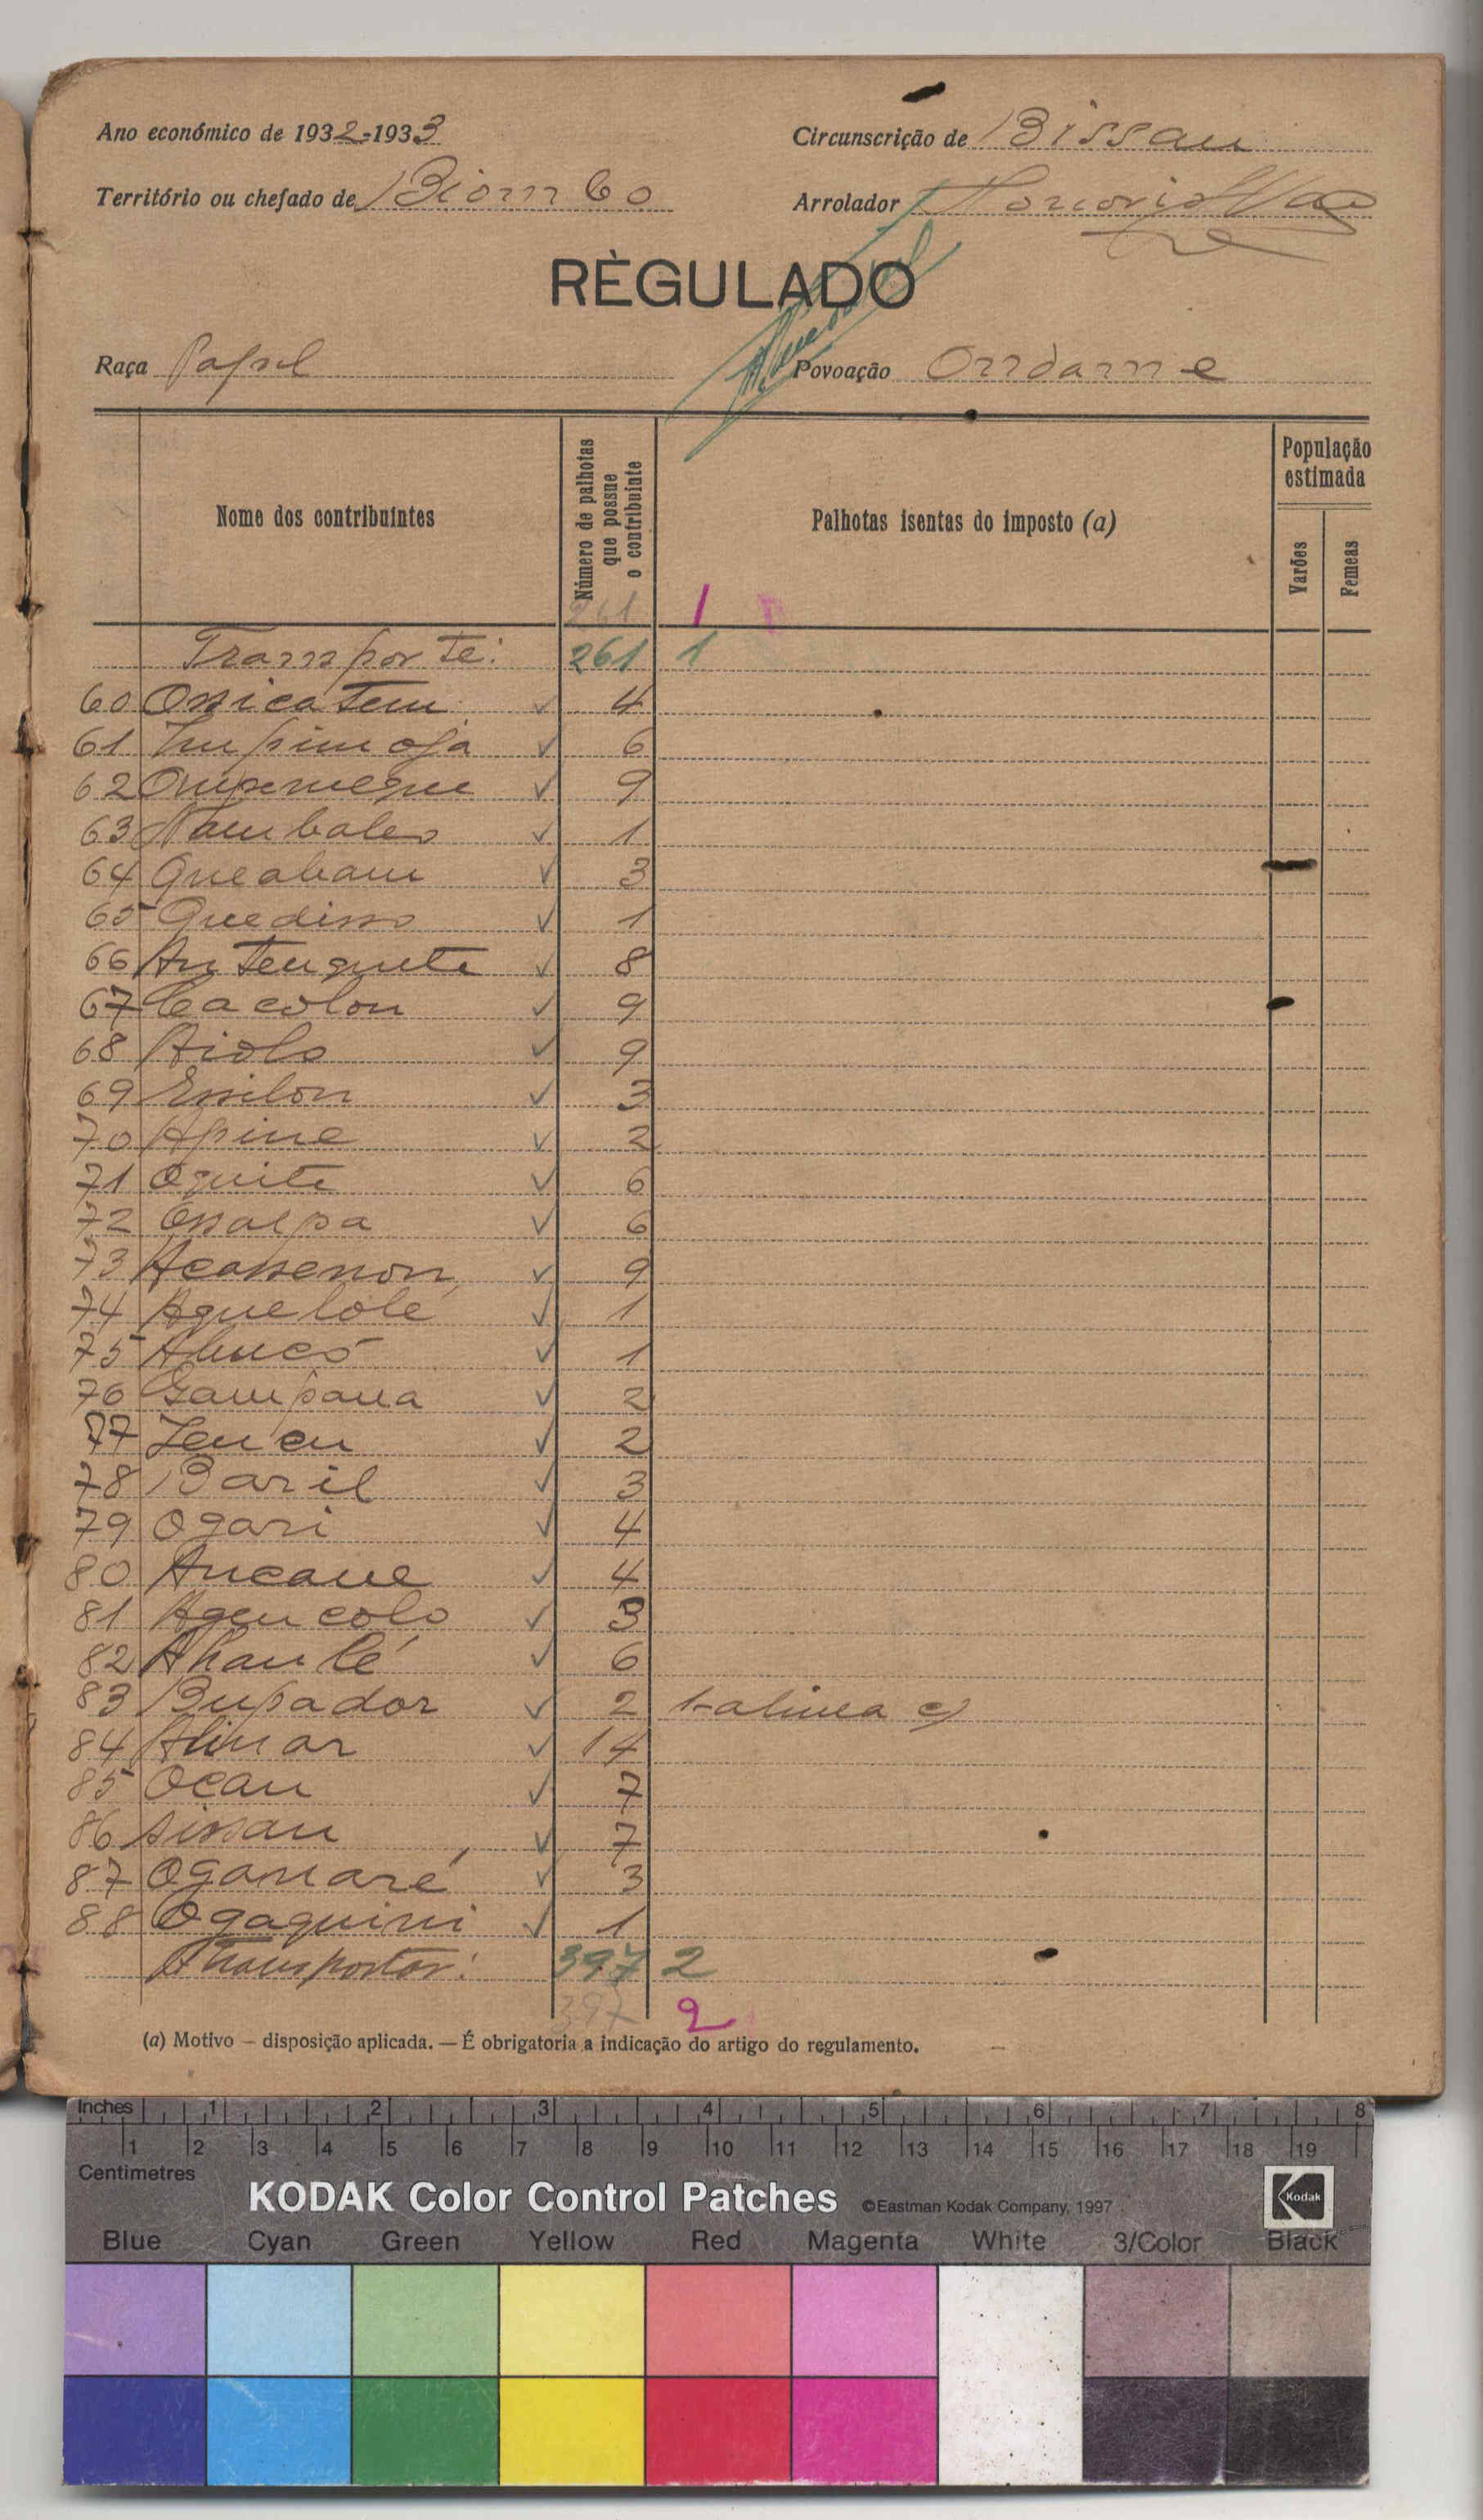 Ano económico de 1932-1933
Circunscrição de Bissau
Território ou chefado de Biombo
Arrolador
RÈGULADO
Raça Papel
Povoação Ondame
Nome dos contribuintes
Número de palhotas que possue o contribuinte
Palhotas isentas do imposto (a)
População estimada
Varões
Femeas
261 1
Transporte: 261 1
60 4
61 6
62 9
63 1
64 Queabam 3
65 Quedisso 1
66 8
67 Cacolon 9
68 Aiolo 9
69 Essilon 3
70 Apine 2
71 Oquite 6
72 Ossalpa 6
73 Acassenon 9
74 Aquelole 1
75 1
76 Gampana 2
77 2
78 Baril 3
79 Ogari 4
80 Aucane 4
81 3
82 6
83 Bupador 2 1-alinea c)
84 Alimar 14
85 Ocau 7
86 Sissau 7
87 3
88 Ogaquini 1
Transportar: 397 2
397 2
(a) Motivo — disposição aplicada. — É obrigatoria a indicação do artigo do regulamento.
Inches 1 2 3 4 5 6 7 8
1 2 3 4 5 6 7 8 9 10 11 12 13 14 15 16 17 18 19
Centimetres
KODAK Color Control Patches ©Eastman Kodak Company, 1997 Kodak
Blue Cyan Green Yellow Red Magenta White 3/Color Black